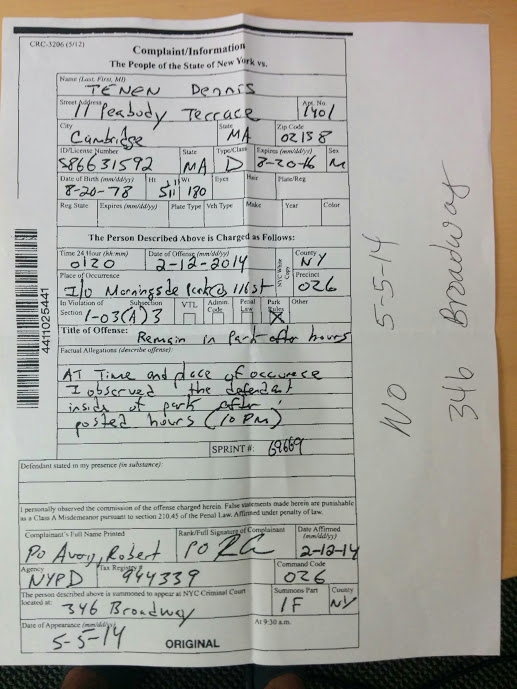 CRC-3206 (5/12)
Complaint/Information
The People of the State of New York vs.
Name (Last, First, MI)
TENEN Dennis
Street Address Apt. No.
11 Peabody Terrace 1401
City State Zip Code
Cambridge MA 02138
ID/License Number State Type/Class Expires (mm/dd/yy) Sex
S86631592 MA D 8-20-16 M
Date of Birth (mm/dd/yy) Ht Wt Eyes Hair Plate/Reg
8-20-78 5'11" 180
Reg State Expires (mm/dd/yy) Plate Type Veh Type Make Year Color
The Person Described Above is Charged as Follows:
Time 24 Hour (hh:mm) Date of Offense (mm/dd/yy) County
0120 2-12-2014 NY
Place of Occurrence Precinct
I/O Morningside Park @ 111 st 026
NYC White Copy
In Violation of Section Subsection VTL Admin Code Penal Law Park Rules Other
1-03(A)3
Title of Offense:
Remain in Park after hours
Factual Allegations (describe offense):
AT Time and place of occurence
I observed the defendant
inside of park after
posted hours (10 PM)
SPRINT #: 69669
Defendant stated in my presence (in substance):
I personally observed the commission of the offense charged herein. False statements made herein are punishable
as a Class A Misdemeanor pursuant to section 210.45 of the Penal Law. Affirmed under penalty of law.
Complaint's Full Name Printed Rank/Full Signature of Complainant Date Affirmed (mm/dd/yy)
Po Avoy, Robert PO 2-12-14
Agency Tax Registry # Command Code
NYPD 944339 026
The person described above is summoned to appear at NYC Criminal Court Summons Part County
located at: 346 Broadway 1F NY
Date of Appearance (mm/dd/yy) At 9:30 a.m.
5-5-14 ORIGINAL
4411025441
No 5-5-14
346 Broadway